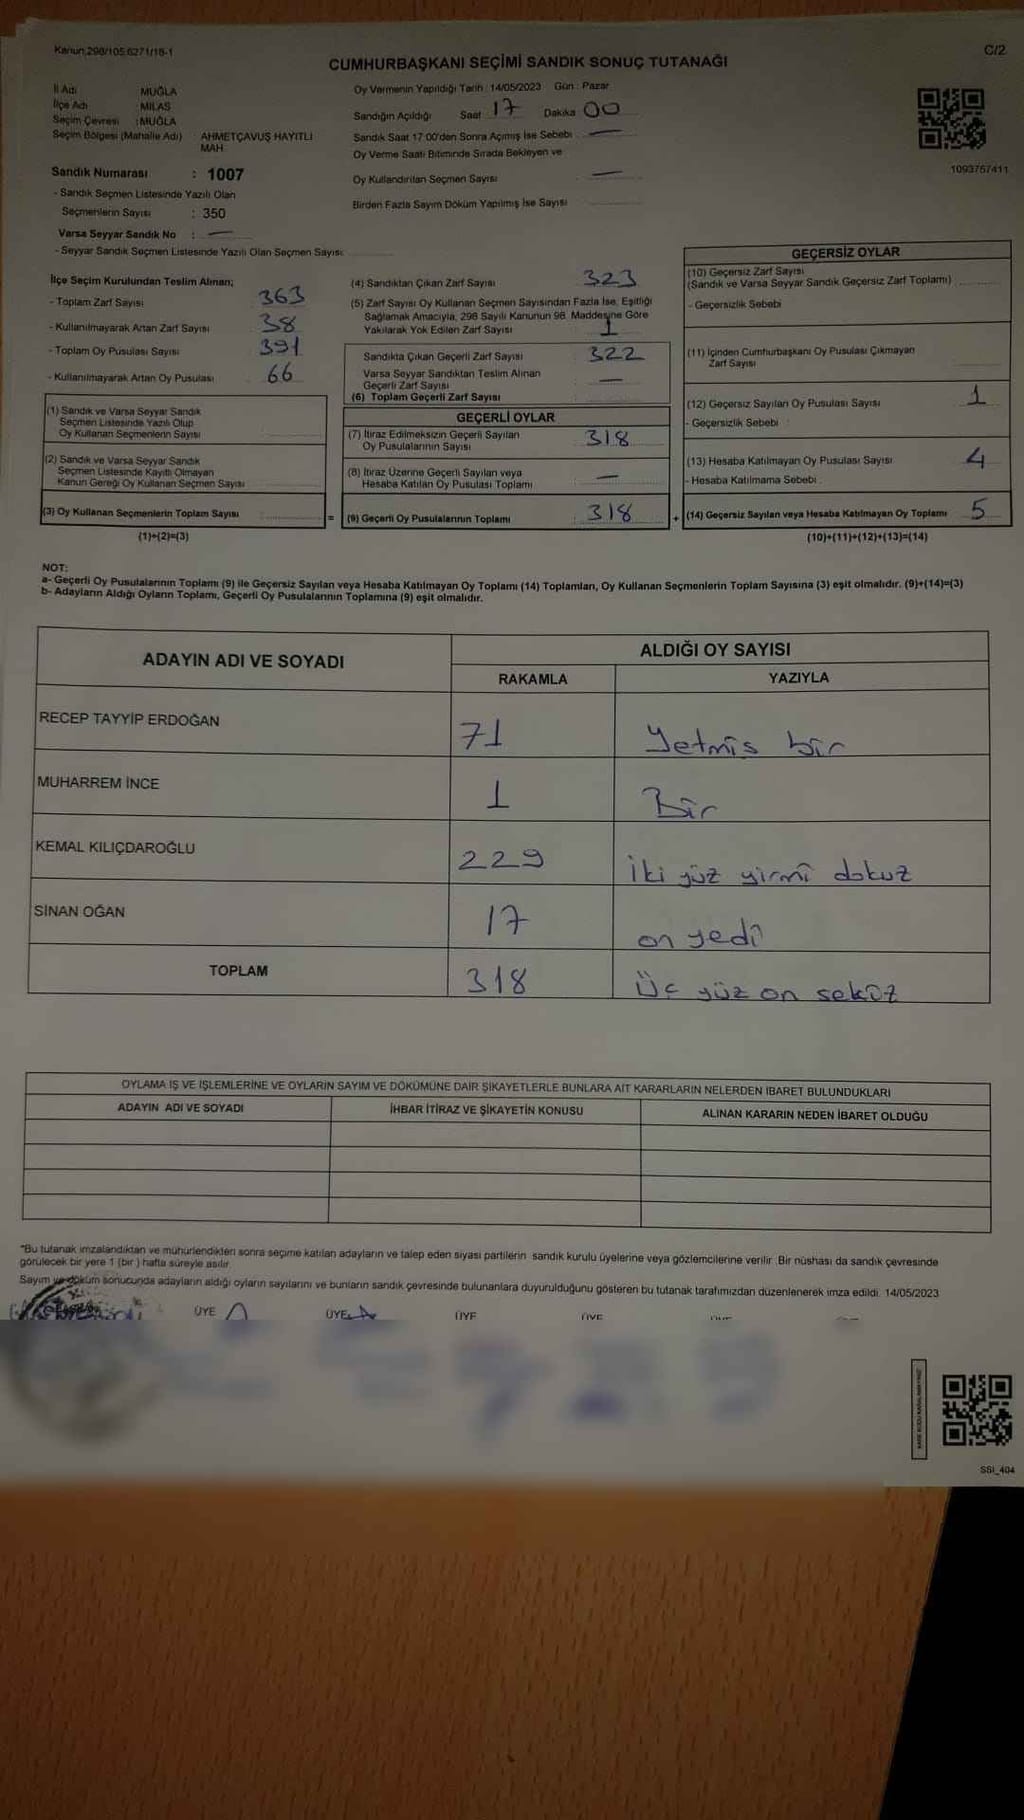 Kanun.298/105.6271/18-1
C/2
CUMHURBAŞKANI SEÇİMİ SANDIK SONUÇ TUTANAĞI
İl Adı MUĞLA
İlçe Adı :MİLAS
Seçim Çevresi :MUĞLA
Seçim Bölgesi (Mahalle Adı) AHMETÇAVUŞ HAYITLI
MAH.
Sandık Numarası : 1007
- Sandık Seçmen Listesinde Yazılı Olan
Seçmenlerin Sayısı : 350
Varsa Seyyar Sandık No : —
- Seyyar Sandık Seçmen Listesinde Yazılı Olan Seçmen Sayısı:
Oy Vermenin Yapıldığı Tarih : 14/05/2023 Gün : Pazar
Sandığın Açıldığı Saat 17 Dakika 00
Sandık Saat 17:00'den Sonra Açımış İse Sebebi —
Oy Verme Saati Bitiminde Sırada Bekleyen ve
Oy Kullandırılan Seçmen Sayısı —
Birden Fazla Sayım Döküm Yapılmış İse Sayısı
1093757411
İlçe Seçim Kurulundan Teslim Alınan;
- Toplam Zarf Sayısı 363
- Kullanılmayarak Artan Zarf Sayısı 38
- Toplam Oy Pusulası Sayısı 391
- Kullanılmayarak Artan Oy Pusulası 66
(1) Sandık ve Varsa Seyyar Sandık
Seçmen Listesinde Yazılı Olup
Oy Kullanan Seçmenlerin Sayısı
(2) Sandık ve Varsa Seyyar Sandık
Seçmen Listesinde Kayıtlı Olmayan
Kanun Gereği Oy Kullanan Seçmen Sayısı
(3) Oy Kullanan Seçmenlerin Toplam Sayısı
(1)+(2)=(3)
=
(4) Sandıktan Çıkan Zarf Sayısı 323
(5) Zarf Sayısı Oy Kullanan Seçmen Sayısından Fazla İse, Eşitliği
Sağlamak Amacıyla, 298 Sayılı Kanunun 98. Maddesine Göre
Yakılarak Yok Edilen Zarf Sayısı 1
Sandıkta Çıkan Geçerli Zarf Sayısı 322
Varsa Seyyar Sandıktan Teslim Alınan
Geçerli Zarf Sayısı —
(6) Toplam Geçerli Zarf Sayısı
GEÇERLİ OYLAR
(7) İtiraz Edilmeksizin Geçerli Sayılan
Oy Pusulalarının Sayısı 318
(8) İtiraz Üzerine Geçerli Sayılan veya
Hesaba Katılan Oy Pusulası Toplamı —
(9) Geçerli Oy Pusulalarının Toplamı 318
+
GEÇERSİZ OYLAR
(10) Geçersiz Zarf Sayısı
(Sandık ve Varsa Seyyar Sandık Geçersiz Zarf Toplamı)
- Geçersizlik Sebebi
(11) İçinden Cumhurbaşkanı Oy Pusulası Çıkmayan
Zarf Sayısı
(12) Geçersiz Sayılan Oy Pusulası Sayısı 1
- Geçersizlik Sebebi :
(13) Hesaba Katılmayan Oy Pusulası Sayısı 4
- Hesaba Katılmama Sebebi :
(14) Geçersiz Sayılan veya Hesaba Katılmayan Oy Toplamı 5
(10)+(11)+(12)+(13)=(14)
NOT:
a- Geçerli Oy Pusulalarının Toplamı (9) ile Geçersiz Sayılan veya Hesaba Katılmayan Oy Toplamı (14) Toplamları, Oy Kullanan Seçmenlerin Toplam Sayısına (3) eşit olmalıdır. (9)+(14)=(3)
b- Adayların Aldığı Oyların Toplamı, Geçerli Oy Pusulalarının Toplamına (9) eşit olmalıdır.
ADAYIN ADI VE SOYADI
ALDIĞI OY SAYISI
RAKAMLA YAZIYLA
RECEP TAYYİP ERDOĞAN 71 Yetmiş bir
MUHARREM İNCE 1 Bir
KEMAL KILIÇDAROĞLU 229 İki yüz yirmi dokuz
SİNAN OĞAN 17 on yedi
TOPLAM 318 Üç yüz on sekiz
OYLAMA İŞ VE İŞLEMLERİNE VE OYLARIN SAYIM VE DÖKÜMÜNE DAİR ŞİKAYETLERLE BUNLARA AİT KARARLARIN NELERDEN İBARET BULUNDUKLARI
ADAYIN ADI VE SOYADI İHBAR İTİRAZ VE ŞİKAYETİN KONUSU ALINAN KARARIN NEDEN İBARET OLDUĞU
*Bu tutanak imzalandıktan ve mühürlendikten sonra seçime katılan adayların ve talep eden siyasi partilerin sandık kurulu üyelerine veya gözlemcilerine verilir. Bir nüshası da sandık çevresinde
görülecek bir yere 1 (bir) hafta süreyle asılır.
Sayım ve döküm sonucunda adayların aldığı oyların sayılarını ve bunların sandık çevresinde bulunanlara duyurulduğunu gösteren bu tutanak tarafımızdan düzenlenerek imza edildi. 14/05/2023
ÜYE ÜYE ÜYE ÜYE
SSI_404